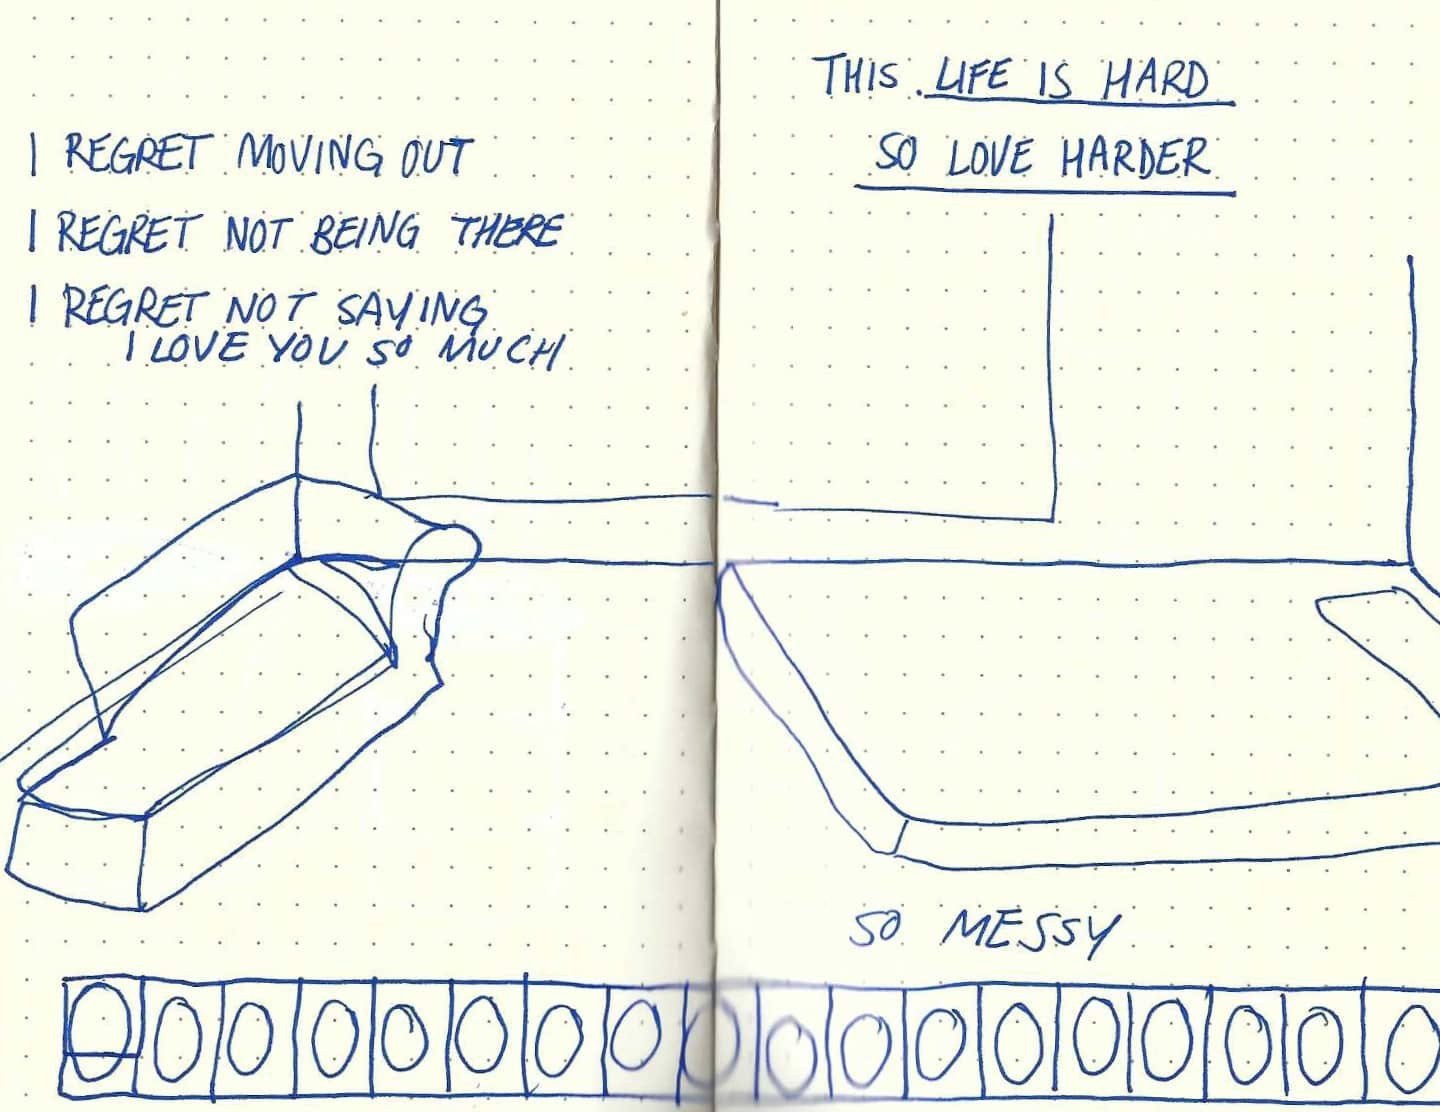 I REGRET MOVING OUT
I REGRET NOT BEING THERE
I REGRET NOT SAYING
I LOVE YOU SO MUCH
THIS LIFE IS HARD
SO LOVE HARDER
SO MESSY